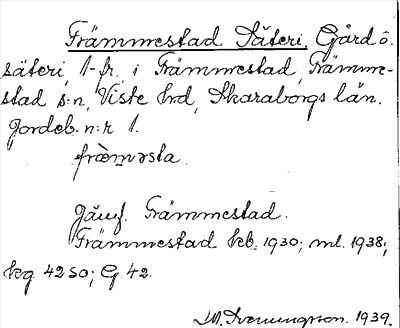 Främmestad Säteri, Gård o.
säteri, 1 fr, i Främmestad, Främme-
stad s:n, Viste hrd, Skaraborgs län.
Jordeb. n:r 1.
frèmǝsta
Jämf. Främmestad.
Främmestad kb. 1930; ml. 1938;
kg 42 SO; G 42.
1939.